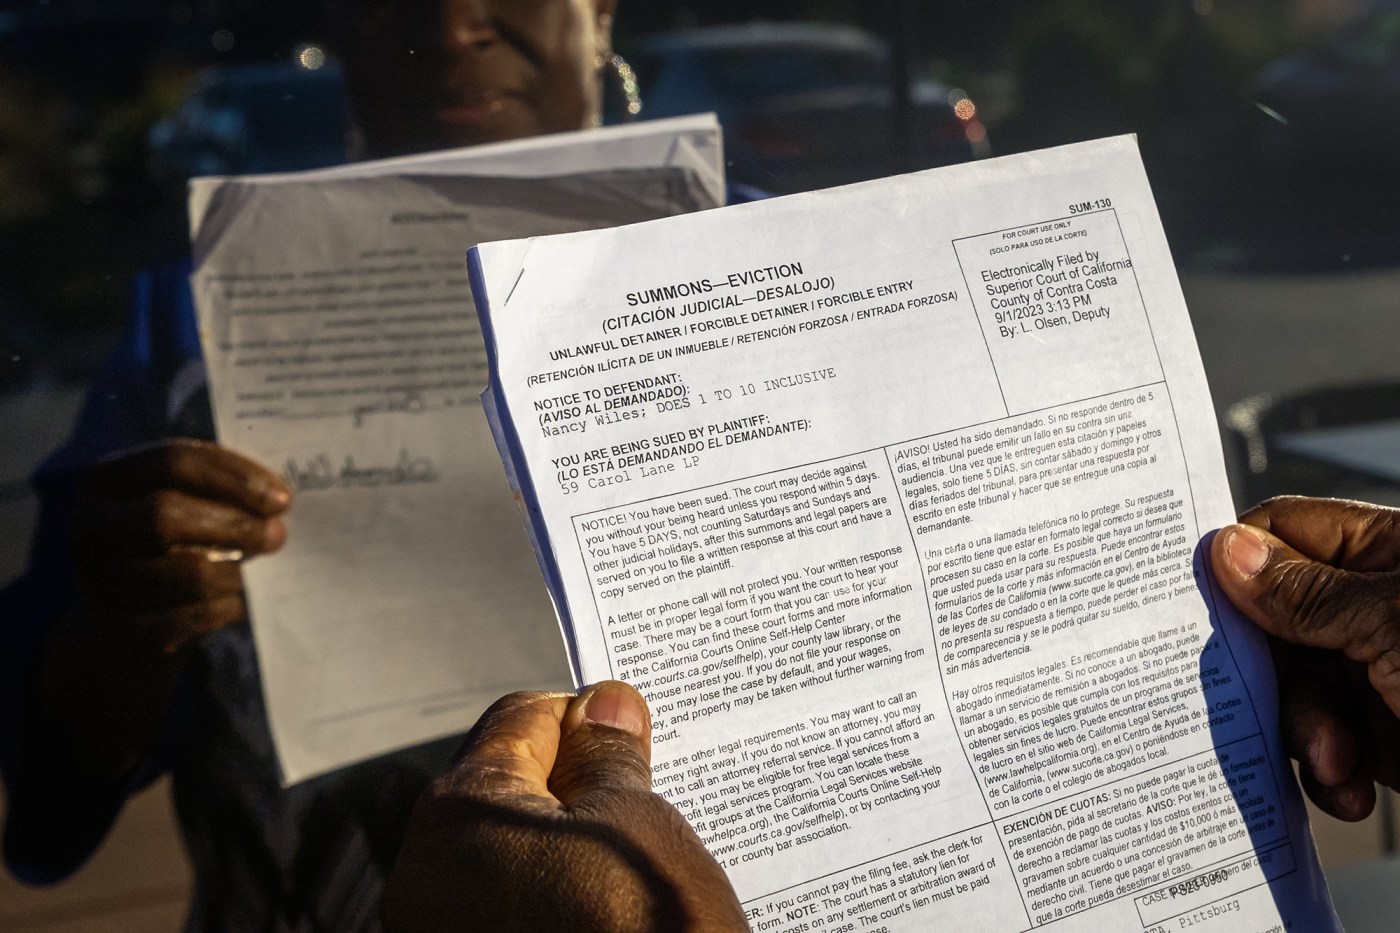 SUM-130
SUMMONS—EVICTION
(CITACIÓN JUDICIAL—DESALOJO)
UNLAWFUL DETAINER / FORCIBLE DETAINER / FORCIBLE ENTRY
(RETENCIÓN ILÍCITA DE UN INMUEBLE / RETENCIÓN FORZOSA / ENTRADA FORZOSA)
FOR COURT USE ONLY
(SOLO PARA USO DE LA CORTE)
Electronically Filed by
Superior Court of California
County of Contra Costa
9/1/2023 3:13 PM
By: L. Olsen, Deputy
NOTICE TO DEFENDANT:
(AVISO AL DEMANDADO):
Nancy Wiles; DOES 1 TO 10 INCLUSIVE
YOU ARE BEING SUED BY PLAINTIFF:
(LO ESTÁ DEMANDANDO EL DEMANDANTE):
59 Carol Lane LP
NOTICE! You have been sued. The court may decide against
you without your being heard unless you respond within 5 days.
You have 5 DAYS, not counting Saturdays and Sundays and
other judicial holidays, after this summons and legal papers are
served on you to file a written response at this court and have a
copy served on the plaintiff.
A letter or phone call will not protect you. Your written response
must be in proper legal form if you want the court to hear your
case. There may be a court form that you can use for your
response. You can find these court forms and more information
at the California Courts Online Self-Help Center
www.courts.ca.gov/selfhelp), your county law library, or the
rthouse nearest you. If you do not file your response on
, you may lose the case by default, and your wages,
ey, and property may be taken without further warning from
court.
here are other legal requirements. You may want to call an
torney right away. If you do not know an attorney, you may
nt to call an attorney referral service. If you cannot afford an
rney, you may be eligible for free legal services from a
rofit legal services program. You can locate these
ofit groups at the California Legal Services website
awhelpca.org), the California Courts Online Self-Help
www.courts.ca.gov/selfhelp), or by contacting your
rt or county bar association.
¡AVISO! Usted ha sido demandado. Si no responde dentro de 5
días, el tribunal puede emitir un fallo en su contra sin una
audiencia. Una vez que le entreguen esta citación y papeles
legales, solo tiene 5 DÍAS, sin contar sábado y domingo y otros
días feriados del tribunal, para presentar una respuesta por
escrito en este tribunal y hacer que se entregue una copia al
demandante.
Una carta o una llamada telefónica no lo protege. Su respuesta
por escrito tiene que estar en formato legal correcto si desea que
procesen su caso en la corte. Es posible que haya un formulario
que usted pueda usar para su respuesta. Puede encontrar estos
formularios de la corte y más información en el Centro de Ayuda
de las Cortes de California (www.sucorte.ca.gov), en la biblioteca
de leyes de su condado o en la corte que le quede más cerca. Si
no presenta su respuesta a tiempo, puede perder el caso por falta
de comparecencia y se le podrá quitar su sueldo, dinero y bienes
sin más advertencia.
Hay otros requisitos legales. Es recomendable que llame a un
abogado inmediatamente. Si no conoce a un abogado, puede
llamar a un servicio de remisión a abogados. Si no puede pagar a
un abogado, es posible que cumpla con los requisitos para
obtener servicios legales gratuitos de un programa de servicios
legales sin fines de lucro. Puede encontrar estos grupos sin fines
de lucro en el sitio web de California Legal Services,
(www.lawhelpcalifornia.org), en el Centro de Ayuda de las Cortes
de California, (www.sucorte.ca.gov) o poniéndose en contacto
con la corte o el colegio de abogados local.
ER: If you cannot pay the filing fee, ask the clerk for
form. NOTE: The court has a statutory lien for
d costs on any settlement or arbitration award of
il case. The court's lien must be paid
EXENCIÓN DE CUOTAS: Si no puede pagar la cuota de
presentación, pida al secretario de la corte que le dé un formulario
de exención de pago de cuotas. AVISO: Por ley, la corte tiene
derecho a reclamar las cuotas y los costos exentos con un
gravamen sobre cualquier cantidad de $10,000 ó más recibida
mediante un acuerdo o una concesión de arbitraje en un caso de
derecho civil. Tiene que pagar el gravamen de la corte antes de
que la corte pueda desestimar el caso.
CASE
Pittsburg